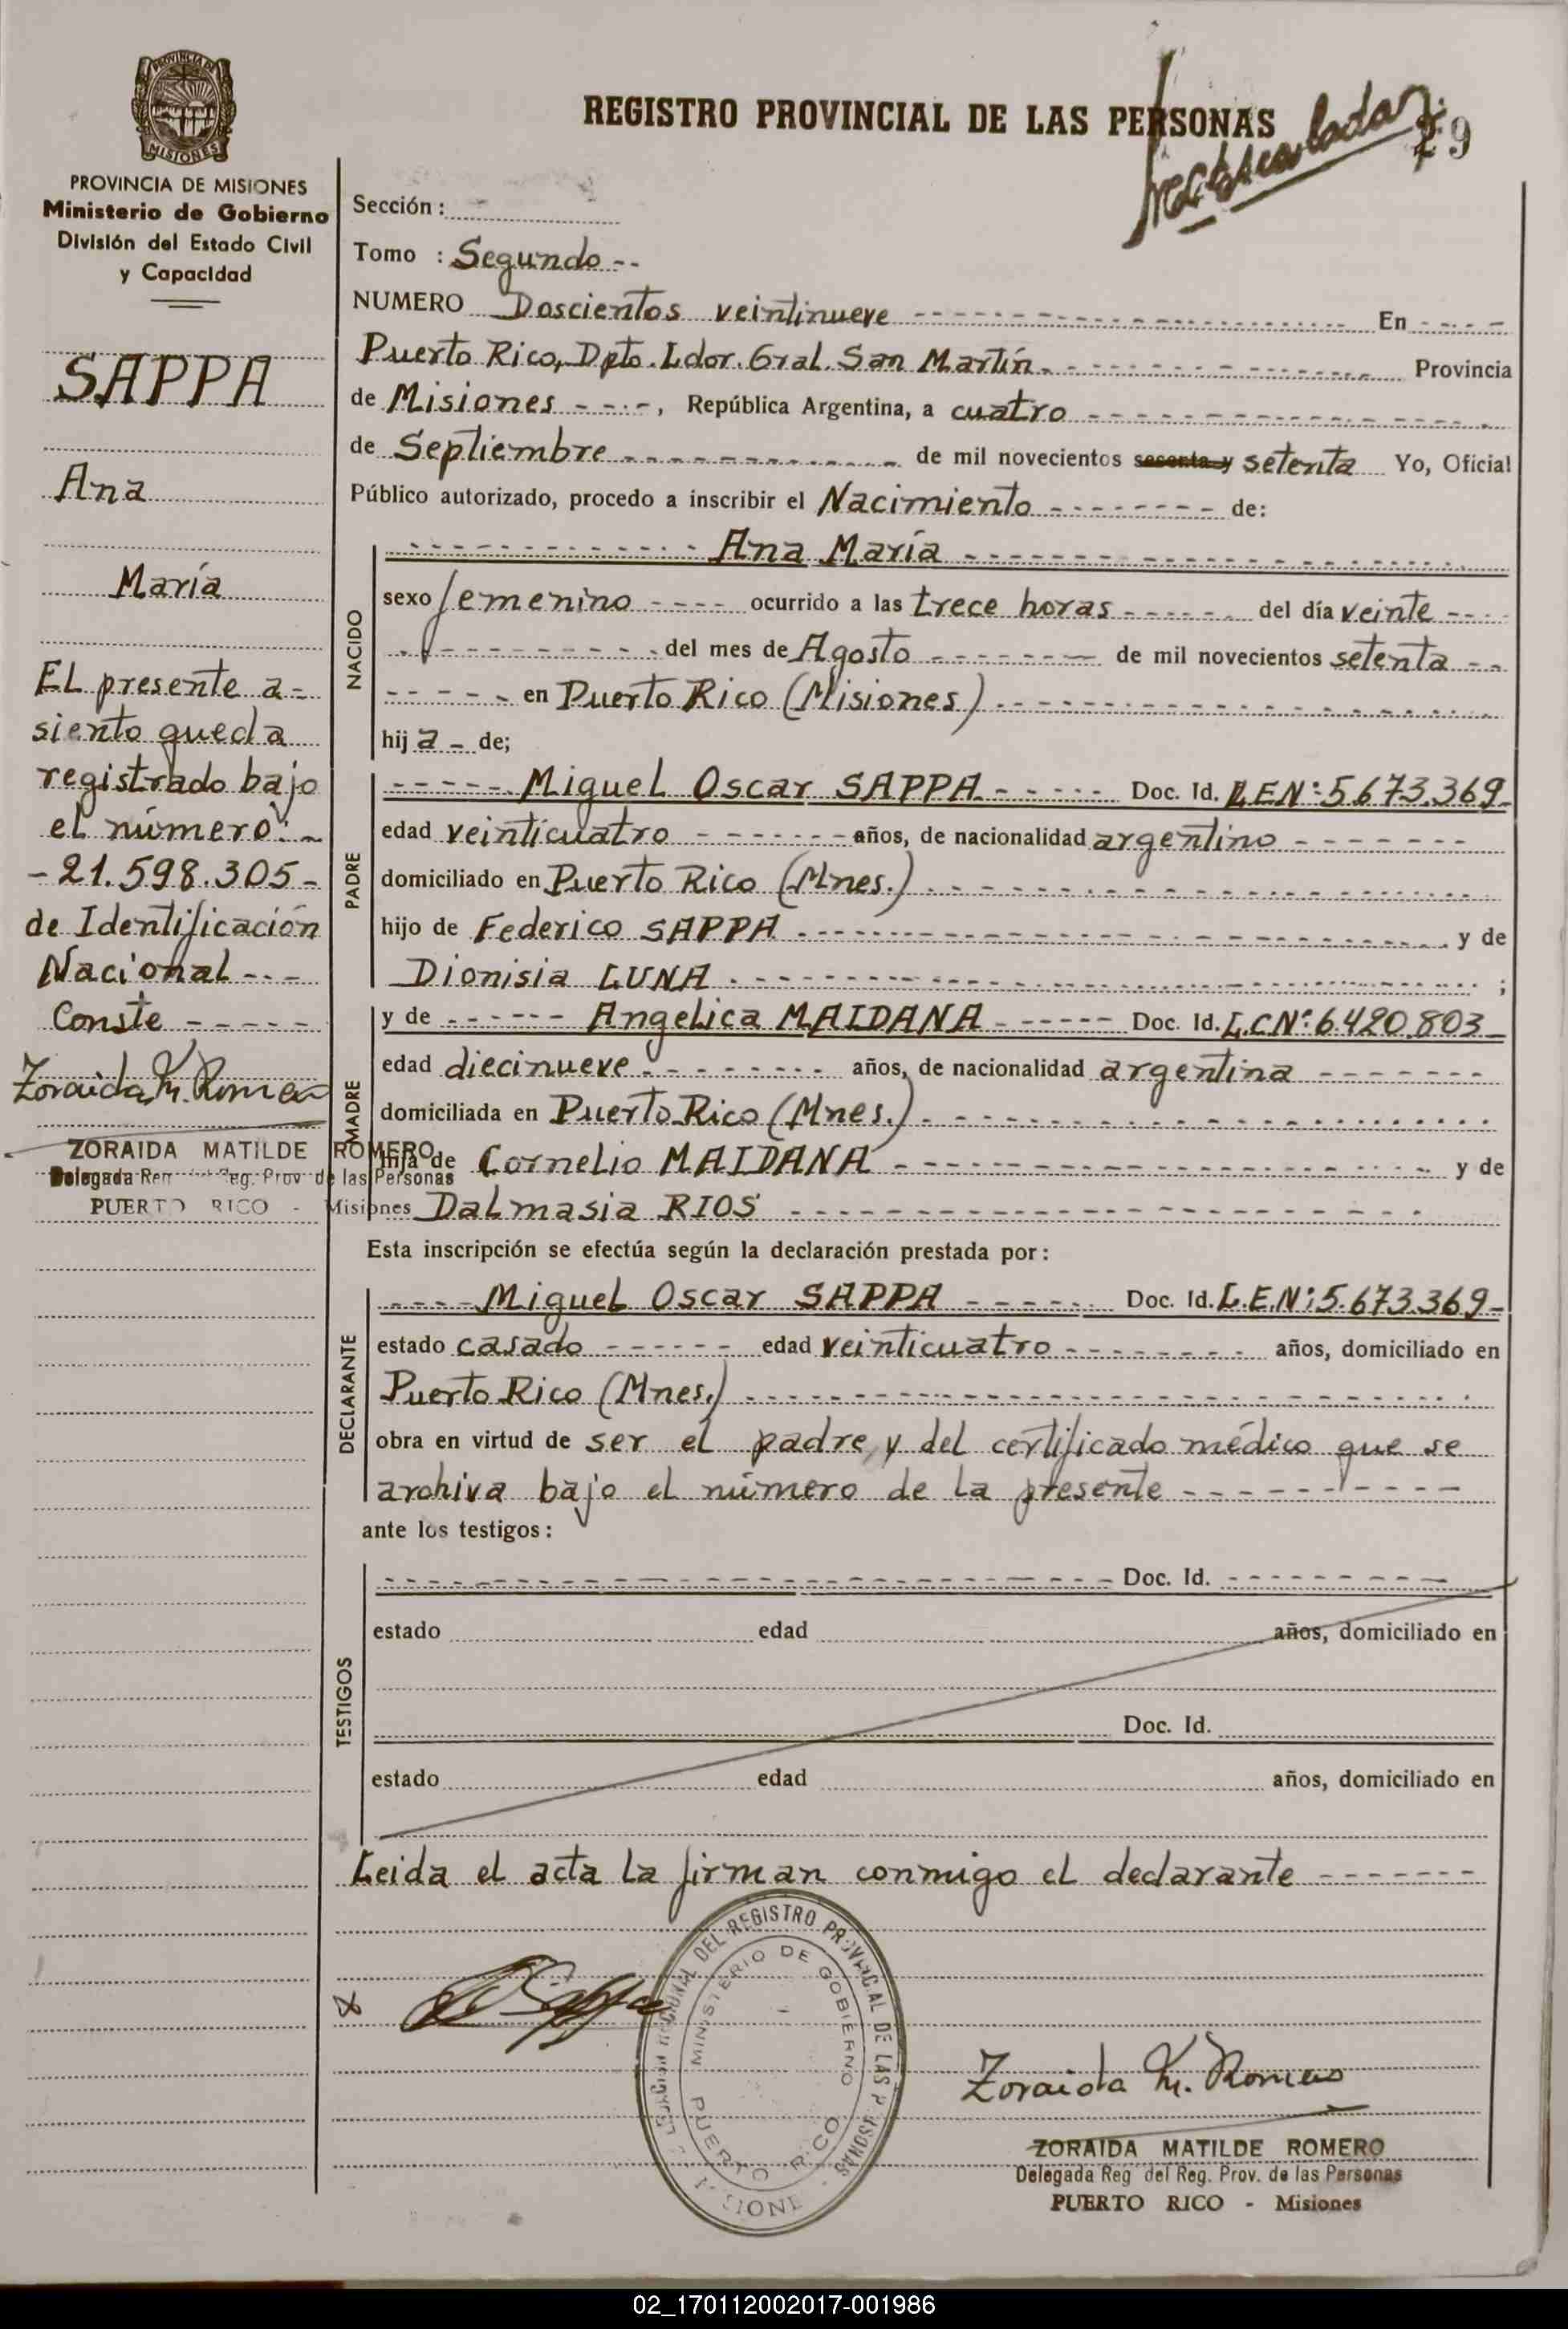 PROVINCIA DE MISIONES
MISIONES
PROVINCIA DE MISIONES
Ministerio de Gobierno
División del Estado Civil
y Capacidad
SAPPA
Ana
María
El presente a-
siento queda
registrado bajo
el número:-
-21.598.305-
de Identificación
Nacional---
Conste-----
Zoraida M. Romero
ZORAIDA MATILDE ROMERO
Delegada Reg. del Reg. Prov de las Personas
PUERTO RICO - Misiones
REGISTRO PROVINCIAL DE LAS PERSONAS
29
Sección:
Tomo : Segundo--
NUMERO Doscientos veintinueve En
Puerto Rico, Dpto. Ldor. Gral. San Martín. Provincia
de Misiones ----, República Argentina, a cuatro
de Septiembre de mil novecientos sesenta y setenta Yo, Oficial
Público autorizado, procedo a inscribir el Nacimiento de:
Ana María
NACIDO
sexo femenino ---- ocurrido a las trece horas del día veinte
del mes de Agosto de mil novecientos setenta --
en Puerto Rico (Misiones)
hij a - de;
PADRE
Miguel Oscar SAPPA Doc. Id. L.E.Nº:5.673.369-
edad veinticuatro años, de nacionalidad argentino
domiciliado en Puerto Rico (Mnes.)
hijo de Federico SAPPA y de
Dionisia LUNA ;
MADRE
y de Angelica MAIDANA Doc. Id. L.C.Nº:6.420.803-
edad diecinueve años, de nacionalidad argentina
domiciliada en Puerto Rico (Mnes.)
hija de Cornelio MAIDANA y de
Dalmasia RIOS
Esta inscripción se efectúa según la declaración prestada por:
DECLARANTE
Miguel Oscar SAPPA Doc. Id. L.E.Nº:5.673.369-
estado casado edad veinticuatro años, domiciliado en
Puerto Rico (Mnes.)
obra en virtud de ser el padre, y del certificado médico que se
archiva bajo el número de la presente
ante los testigos:
TESTIGOS
Doc. Id.
estado edad años, domiciliado en
Doc. Id.
estado edad años, domiciliado en
Leida el acta la firman conmigo el declarante
DEL REGISTRO PROVINCIAL DE LAS PERSONAS
MINISTERIO DE GOBIERNO
PUERTO RICO
MISIONES
Zoraida M. Romero
ZORAIDA MATILDE ROMERO
Delegada Reg del Reg. Prov. de las Personas
PUERTO RICO - Misiones
02_170112002017-001986